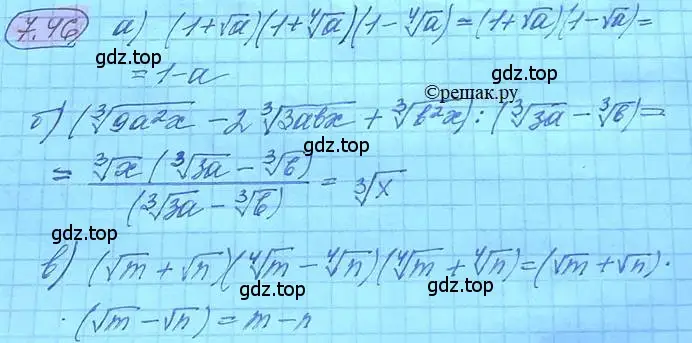 7.46 а) (1+√a)(1+⁴√a)(1-⁴√a)=(1+√a)(1-√a)=
= 1-a
gdz.top
gdz.top
©решак.ру
б) (³√9a²x - 2 ³√3abx + ³√b²x) : (³√3a - ³√b)=
gdz.top
= ³√x (³√3a - ³√b) / (³√3a - ³√b) = ³√x
gdz.top
gdz.top
в) (√m + √n)(⁴√m - ⁴√n)(⁴√m + ⁴√n)=(√m + √n)·
· (√m - √n) = m - n
gdz.top
gdz.top